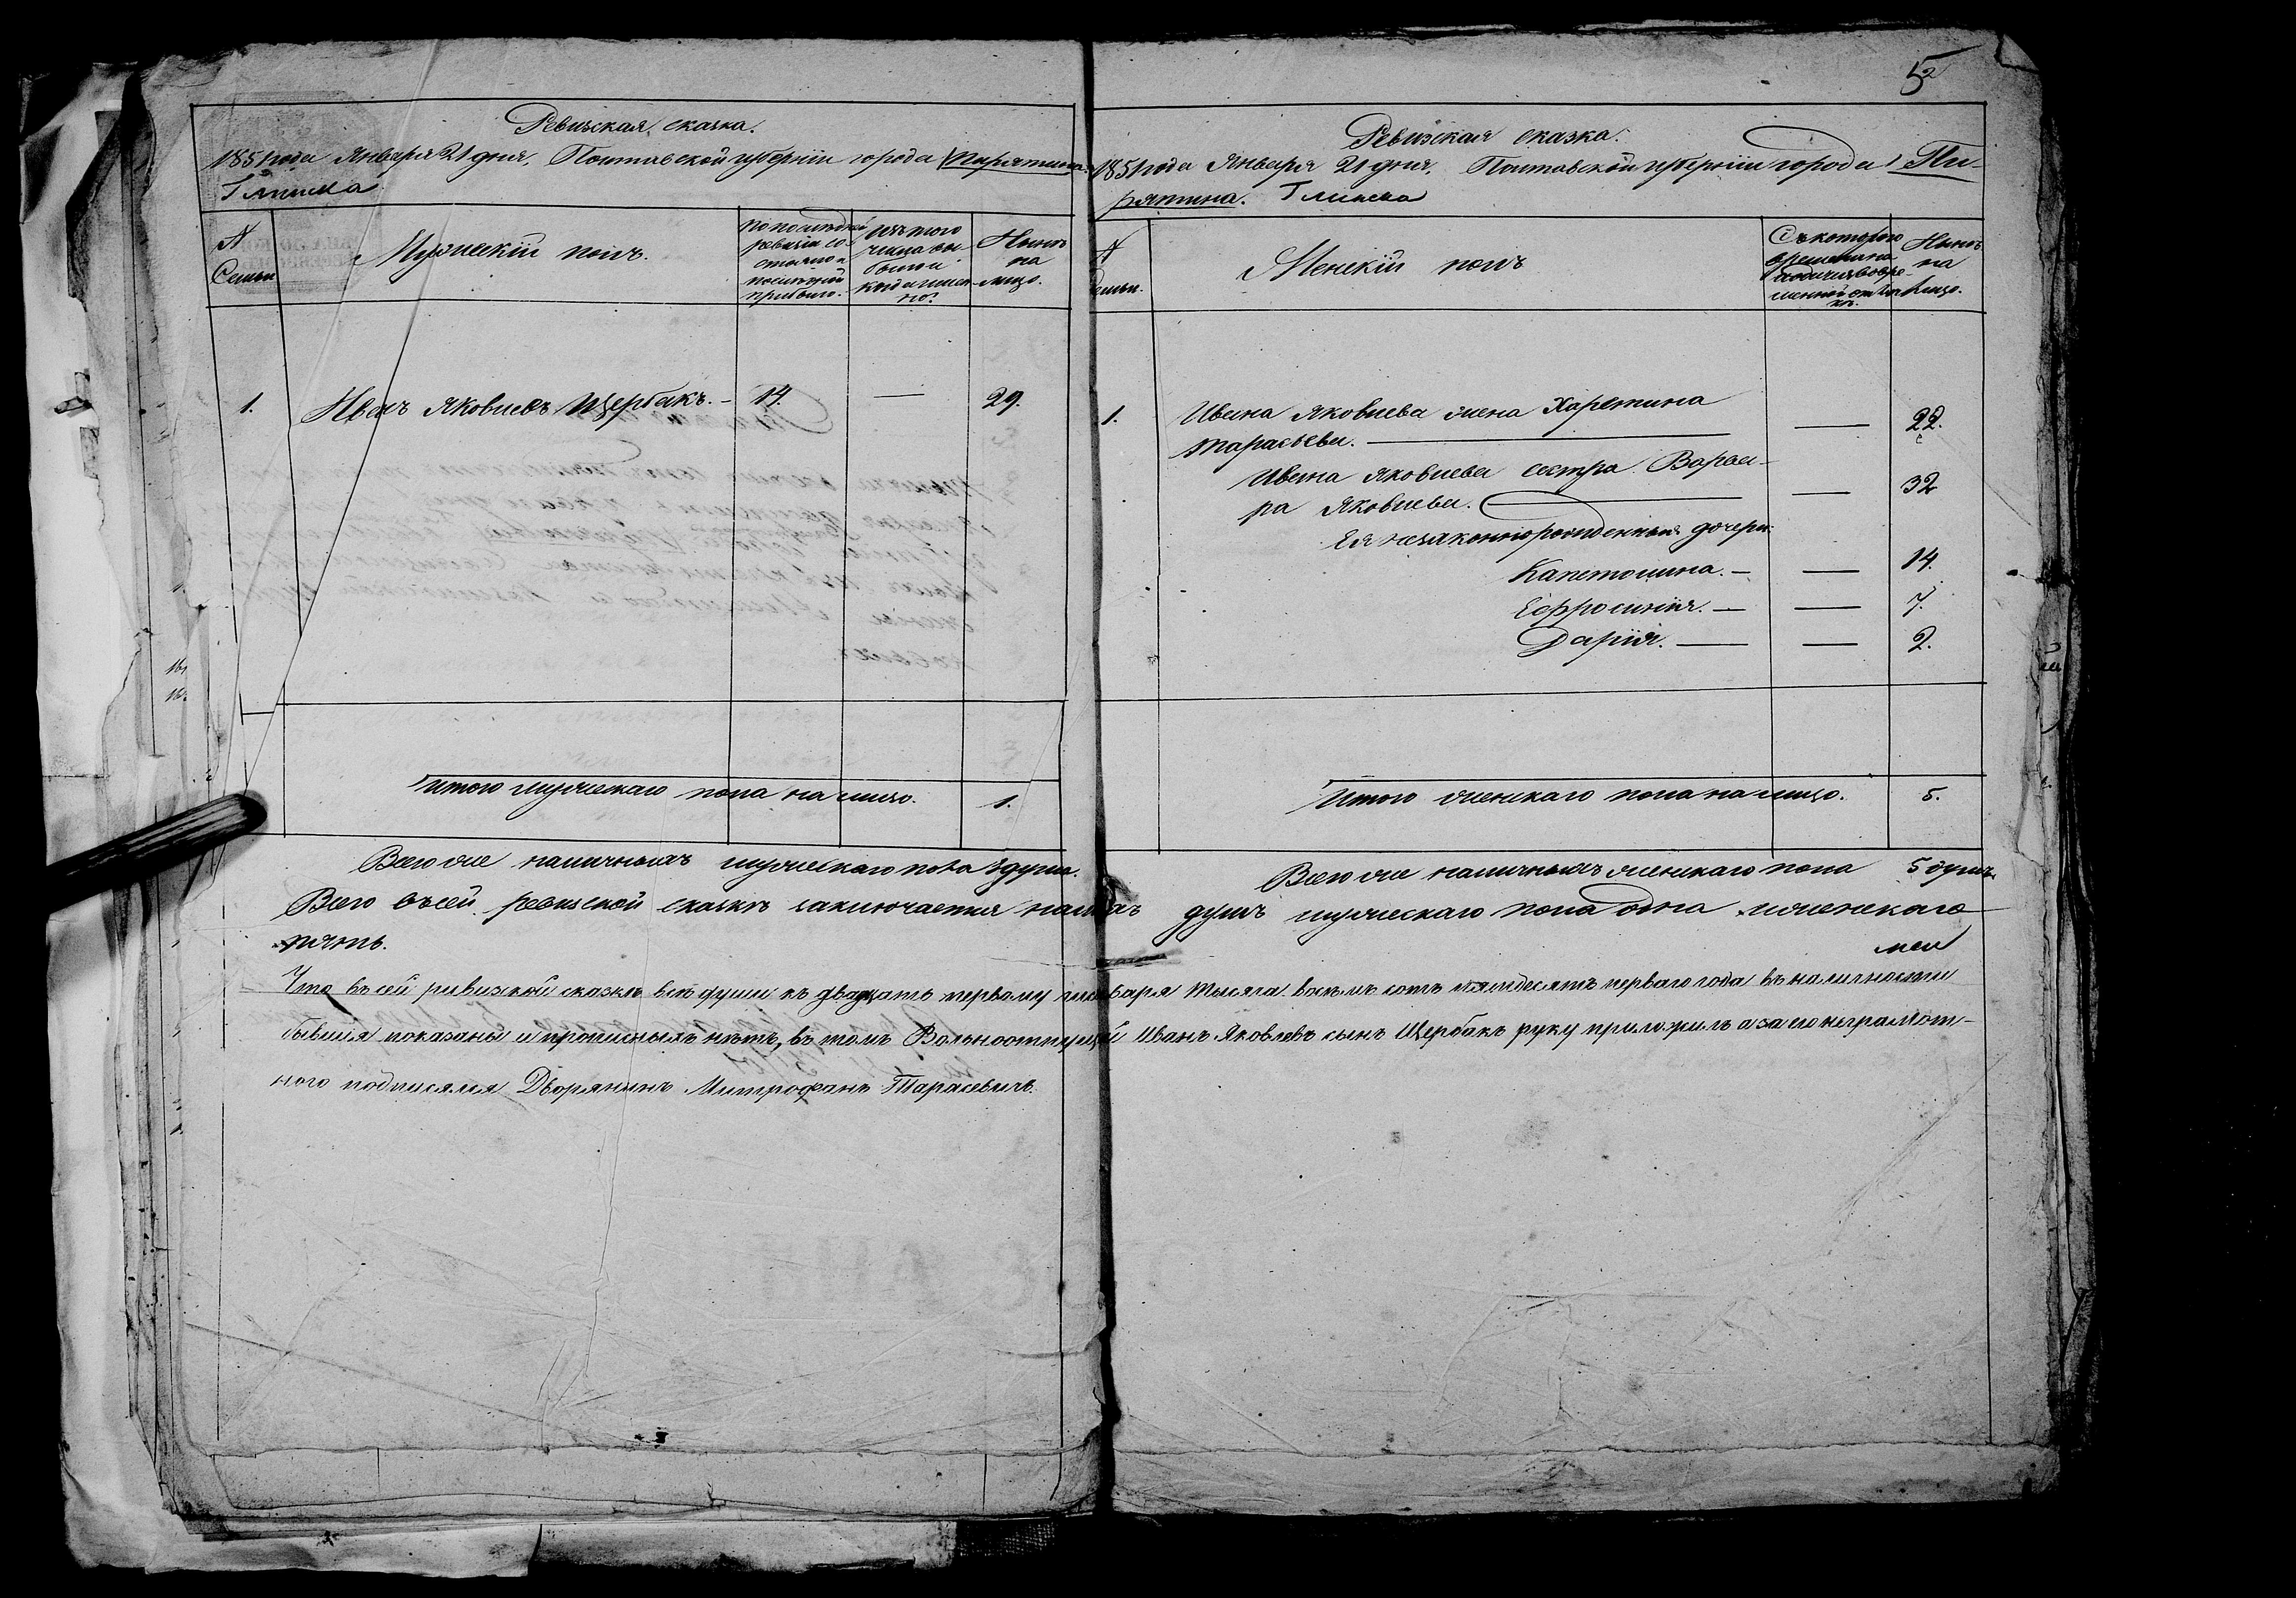 5
Ревизская сказка.
1851 года Января 21 дня, Полтавской губернии города Пирятина.
Глинска
№ Семьи
Мужеский полъ.
По последней ревизіи состояло и после оной прибыло.
Изъ того числа выбыло и когда именно?
Нынѣ на лицо.
1. Иванъ Яковлевъ Щербакъ. — 14. — 29.
Итого мужескаго пола на лицо. 1.
Всего же наличныхъ мужескаго пола 1 душа.
Ревизская сказка.
1851 года Января 21 дня, Полтавской губерніи города Пи-
рятина. Глинска
№ Семьи.
Женскій полъ
Съ котораго времени на ходится во временной отлучкѣ.
Нынѣ на лицо.
1. Ивана Яковлева жена Харетина
Тарасьева. — — 22.
Ивана Яковлева сестра Варва-
ра Яковлева. — — 32
Ея незаконнорожденныя дочери:
Капетолина. — — 14.
Ефросинія. — — 7.
Дарія. — — 2.
Итого женскаго пола на лицо. 5.
Всего же наличныхъ женскаго пола 5 душъ.
Всего въ сей ревизской сказкѣ заключается налицо душъ мужескаго пола одна и женскаго
пять.
Что въ сей ревизской сказкѣ всѣ души къ двадцать первому января тысяча восемь сотъ пятидесятъ перваго года въ наличности
бывшія показаны и прописныхъ нѣтъ, въ томъ Вольноотпущенный Иванъ Яковлевъ сынъ Щербакъ руку приложилъ а за его неграмот-
ного подписался Дворянинъ Митрофанъ Тарасевичъ.